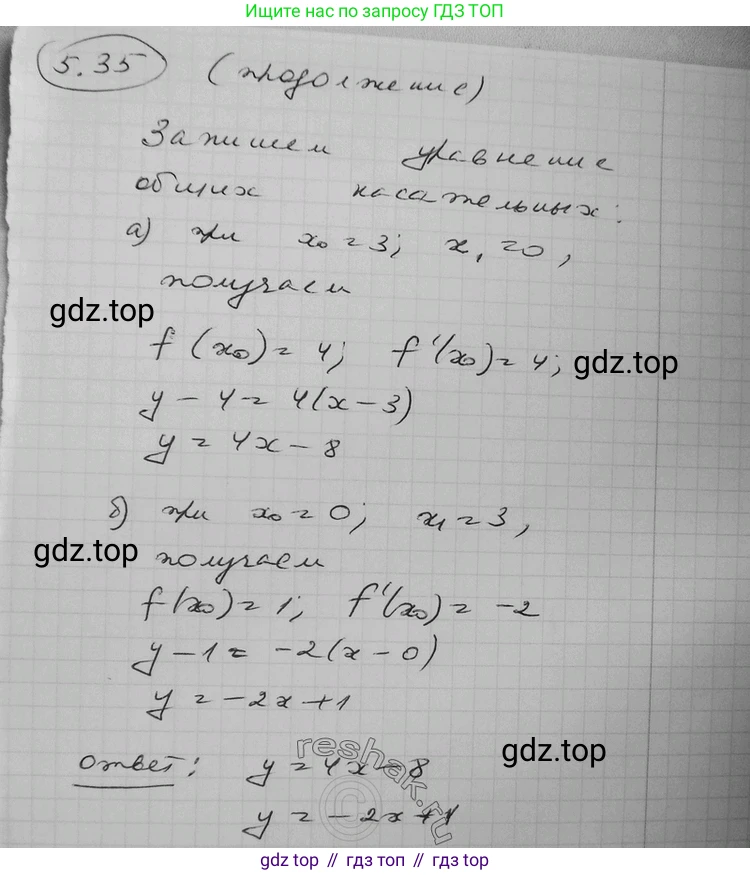 Ищите нас по запросу ГДЗ ТОП
5.35 (продолжение)
Запишем уравнение
общих касательных:
а) при x₀ = 3; x₁ = 0,
получаем
gdz.top
f(x₀) = 4; f'(x₀) = 4;
gdz.top
y - 4 = 4(x - 3)
y = 4x - 8
б) при x₀ = 0; x₁ = 3,
gdz.top
получаем
f(x₀) = 1; f'(x₀) = -2
y - 1 = -2(x - 0)
y = -2x + 1
gdz.top
Ответ: y = 4x - 8
y = -2x + 1
reshak.ru
©
gdz top // гдз топ // gdz top